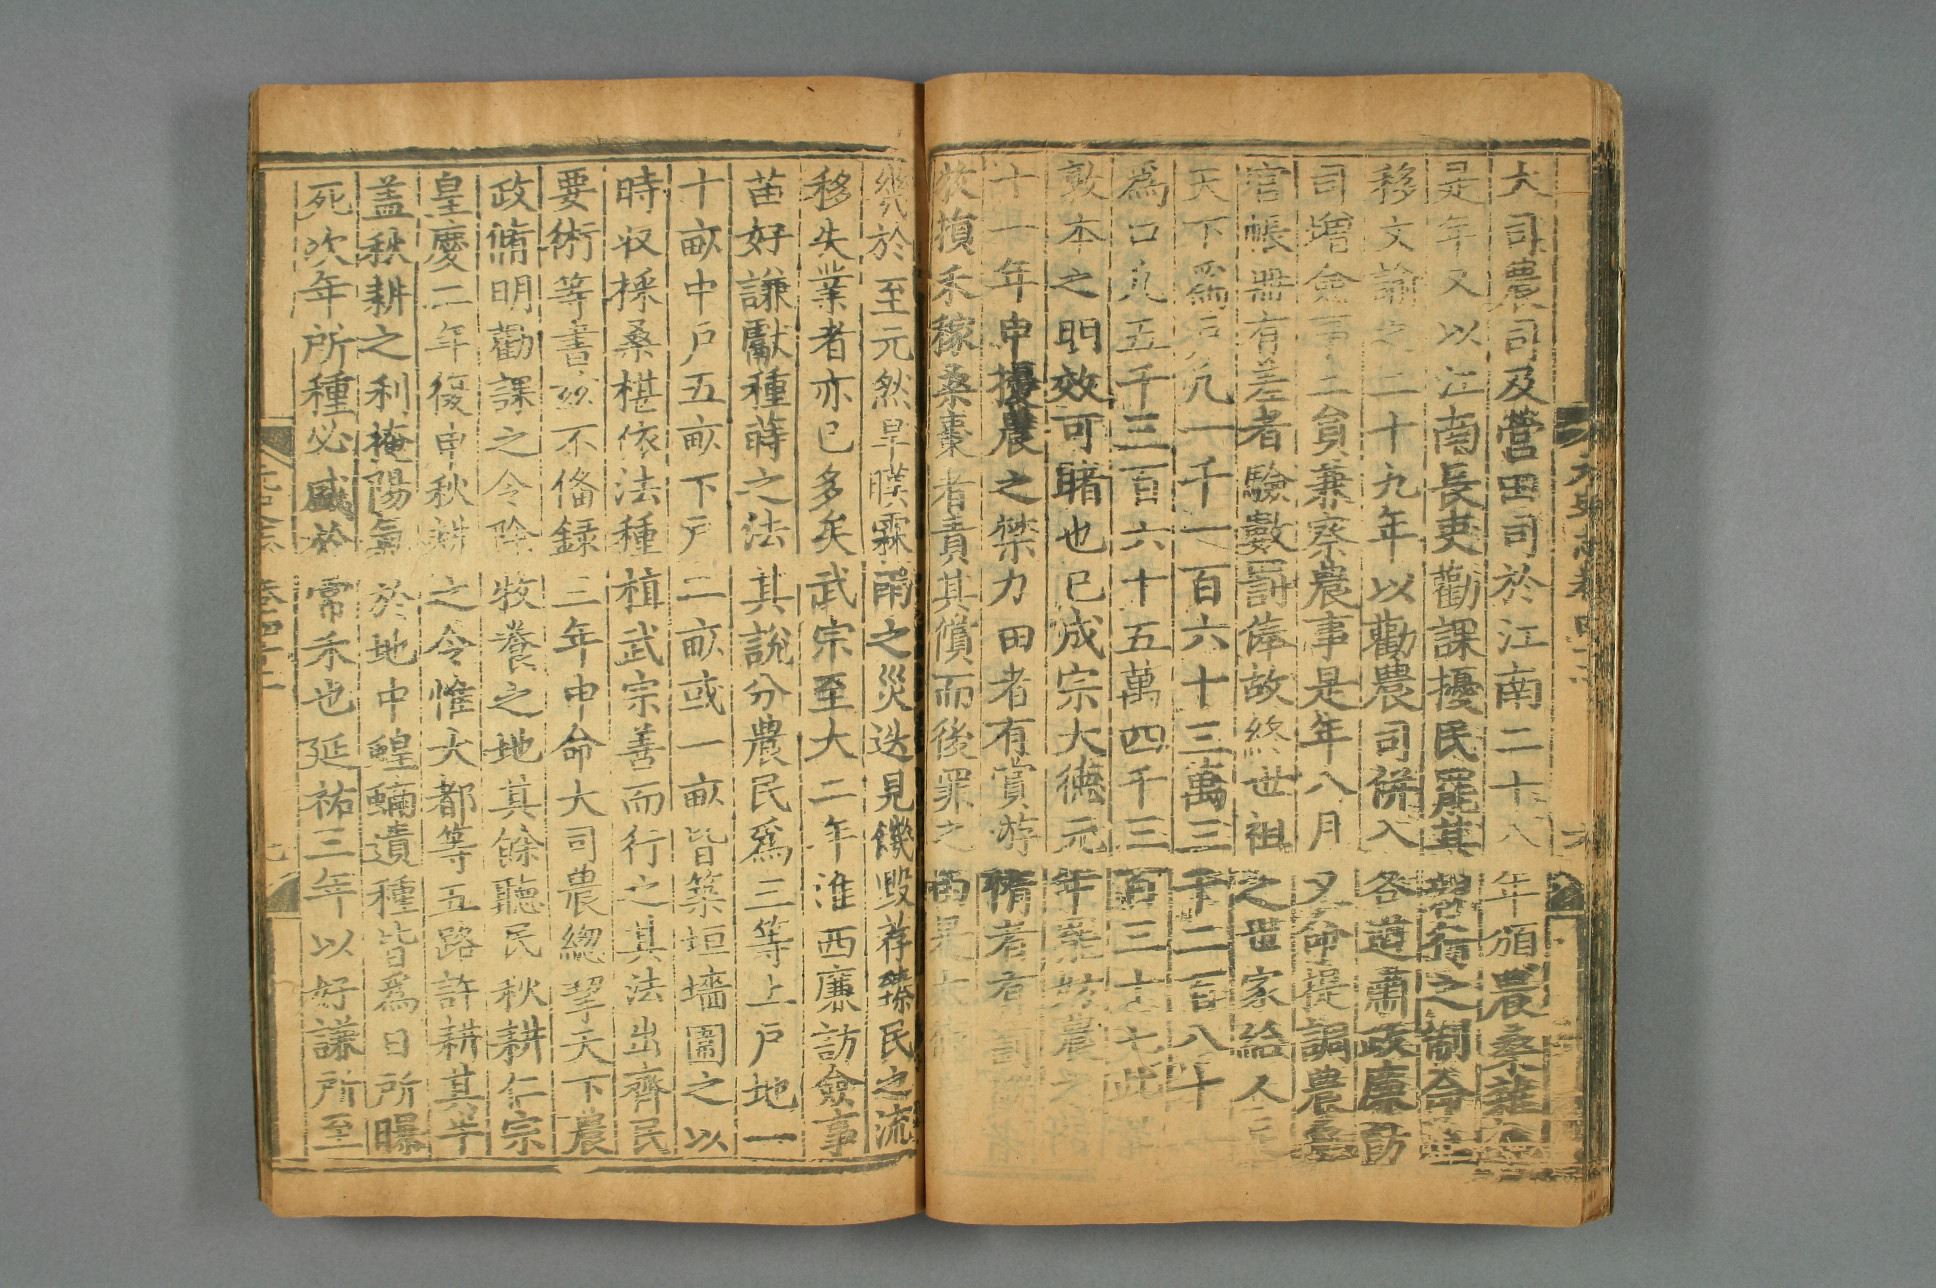 元史志卷四十二 六
大司農司及營田司於江南二十八年頒農桑雜令
是年又以江南長吏勸課擾民罷其親行之制命
移文諭之二十九年以勸農司併入各道肅政廉訪
司增僉事二員兼察農事是年八月又命提調農桑
官帳冊有差者驗數罰俸故終世祖之世家給人足
天下爲戶凡一千一百六十三萬三千二百八十
爲口凡五千三百六十五萬四千三百三十七此
敦本之明效可睹也已成宗大德元年罷妨農之役
十一年申擾農之禁力田者有賞游惰者有罰縱畜
牧損禾稼桑棗者責其償而後罪之由是大德
幾於至元然旱暵霖雨之災迭見饑毀荐臻民之流
移失業者亦已多矣武宗至大二年淮西廉訪僉事
苗好謙獻種蒔之法其說分農民爲三等上戶地一
十畝中戶五畝下戶二畝或一畝皆築垣墻圍之以
時収採桑椹依法種植武宗善而行之其法出齊民
要術等書茲不俻録三年申命大司農總挈天下農
政脩明勸課之令除牧養之地其餘聽民秋耕仁宗
皇慶二年復申秋耕之令惟大都等五路許耕其半
盖秋耕之利掩陽氣於地中蝗蝻遺種皆爲日所曝
死次年所種必盛於常禾也延祐三年以好謙所至